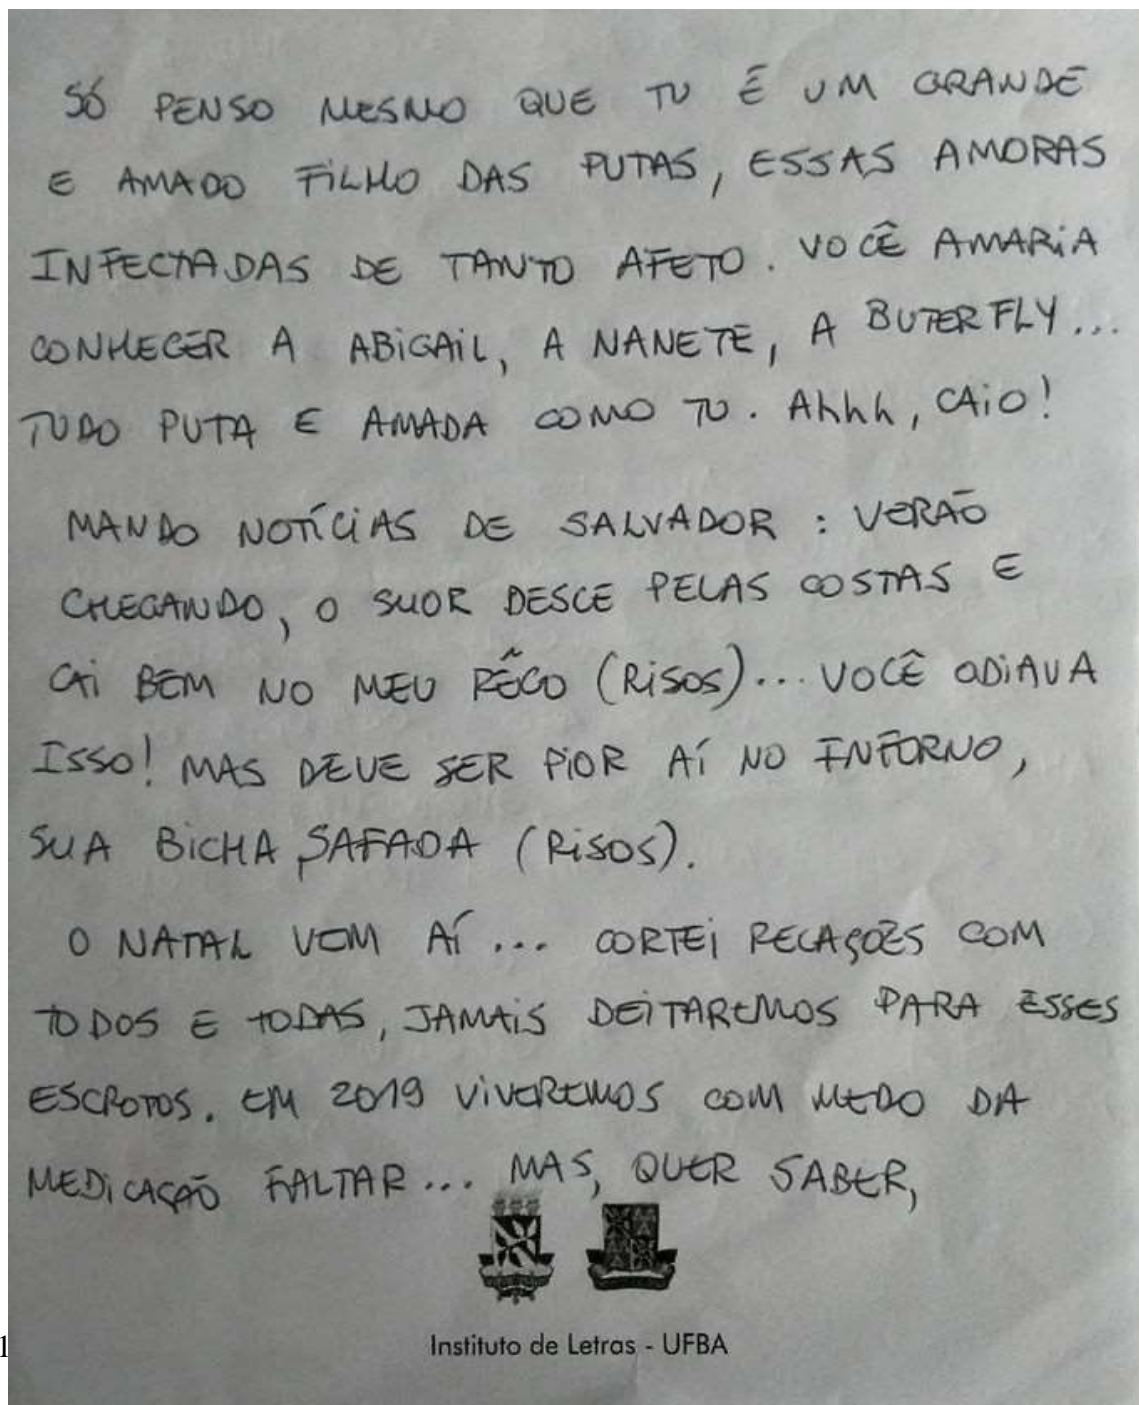 SÓ PENSO MESMO QUE TU É UM GRANDE
E AMADO FILHO DAS PUTAS, ESSAS AMORAS
INFECTADAS DE TANTO AFETO. VOCÊ AMARIA
CONHECER A ABIGAIL, A NANETE, A BUTERFLY...
TUDO PUTA E AMADA COMO TU. Ahhh, CAIO!
MANDO NOTÍCIAS DE SALVADOR: VERÃO
CHEGANDO, O SUOR DESCE PELAS COSTAS E
CAI BEM NO MEU RÊGO (RISOS)... VOCÊ ODIAVA
ISSO! MAS DEVE SER PIOR AÍ NO INFERNO,
SUA BICHA SAFADA (RISOS).
O NATAL VEM AÍ... CORTEI RELAÇÕES COM
TODOS E TODAS, JAMAIS DEITAREMOS PARA ESSES
ESCROTOS. EM 2019 VIVEREMOS COM MEDO DA
MEDICAÇÃO FALTAR... MAS, QUER SABER,
Instituto de Letras - UFBA
1